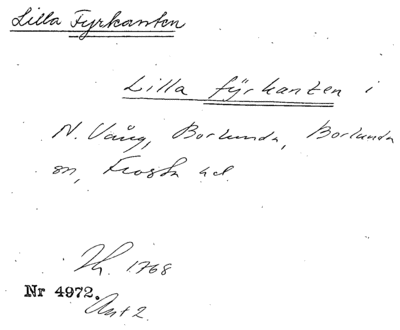 Lilla Fyrkanten
Lilla fÿrkanten i
N. Vång, Borlunda, Borlunda
sn, Frosta hd.
Lh. 1768
Nr 4972.
Akt 2.